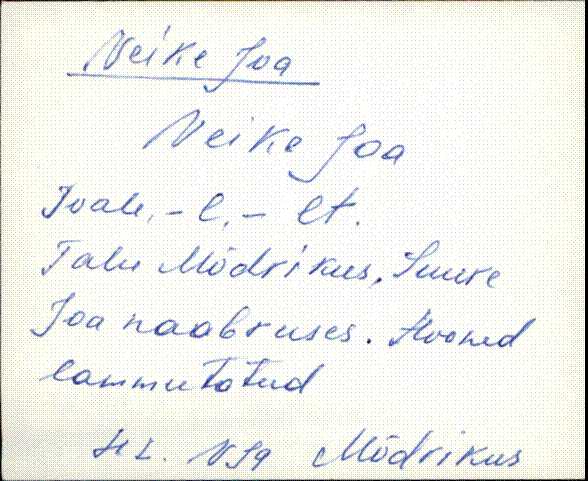 Veike Joa
Veike Joa
Joale, -l, - lt.
Talu Mõdrikus, Suure
Joa naabruses. Hooned
lammutatud
HL. VJg Mõdrikus